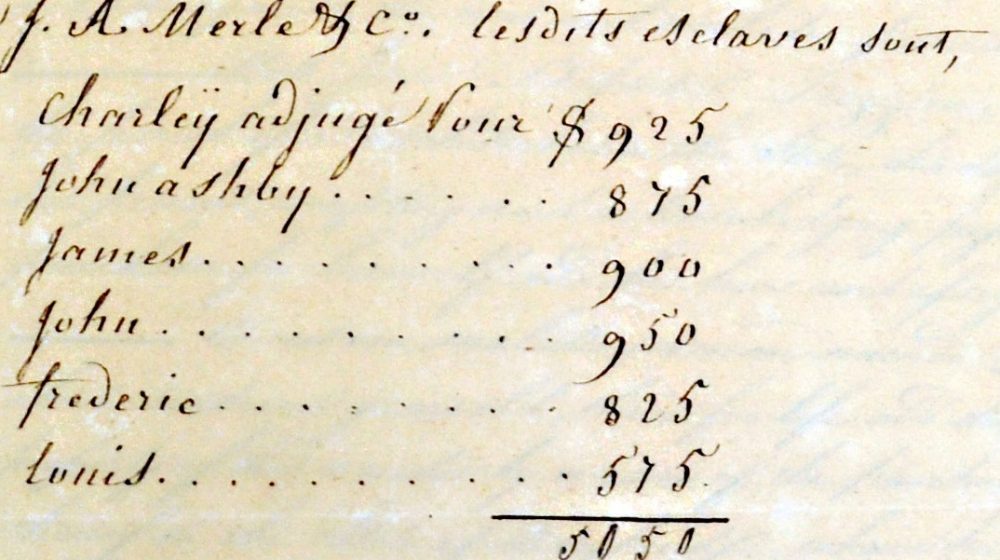 J. A. Merle & Co. lesdits esclaves sont,
Charleÿ adjugé Pour $ 925
John ashby . . . . . . 875
James . . . . . . . . . . 900
John . . . . . . . . . . 950
frederic . . . . . . . . . 825
louis . . . . . . . . . . . 575
5050